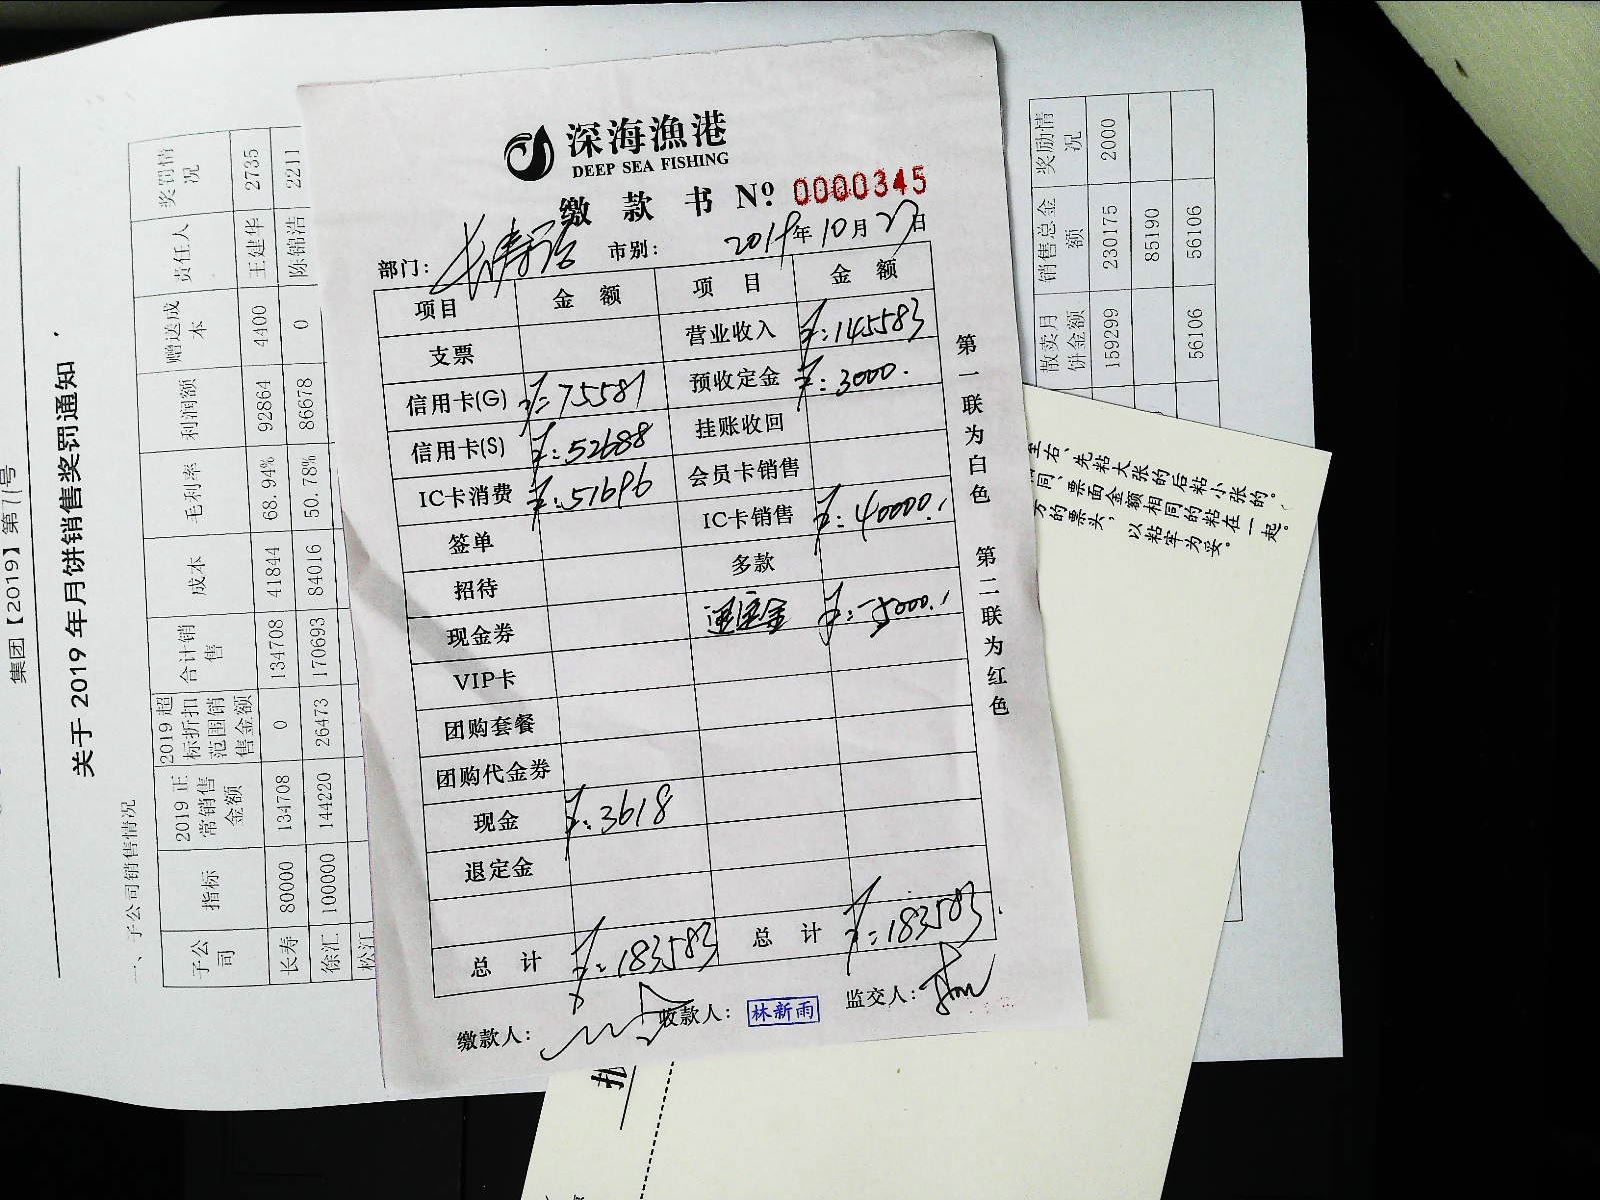 深海漁港
DEEP SEA FISHING
缴款书 Nº 0000345
部门: 长寿 市别: 2019年10月27日
项目 金额 项目 金额
支票 营业收入 ¥:145583
信用卡(G) ¥:75581 预收定金 ¥:3000.
信用卡(S) ¥:52688 挂账收回
IC卡消费 ¥:51696 会员卡销售
签单 IC卡销售 ¥:40000.
招待 多款
现金券 ¥:-5000.
VIP卡
团购套餐
团购代金券
现金 ¥:3618
退定金
总计 ¥:183583 总计 ¥:183583.
缴款人: 收款人: 林新雨 监交人:
第一联为白色 第二联为红色
集团【2019】第71号
关于2019年月饼销售奖罚通知
一、子公司销售情况
子公司 指标 2019正常销售金额 2019超标折扣范围销售金额 合计销售 成本 毛利率 利润额 赠送成本 责任人 奖罚情况
长寿 80000 134708 0 134708 41844 68.94% 92864 4400 王建华 2735
徐汇 100000 144220 26473 170693 84016 50.78% 86678 0 陈锦浩 2211
松江
散卖月饼金额 销售总金额 奖励情况
159299 230175 2000
85190
56106 56106
至右、先粘大张的后粘小张的。
同、票面金额相同的粘在一起。
方的票头，以粘牢为妥。